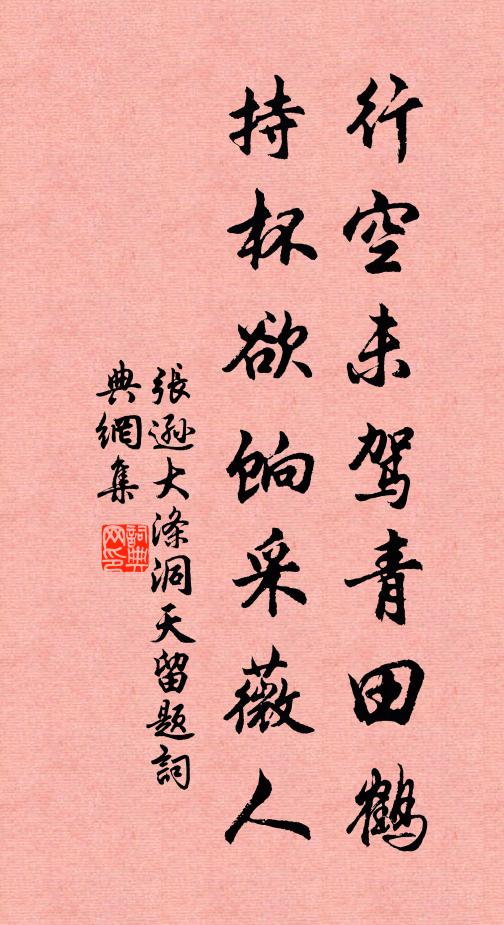 行空未駕青田鶴
持杯欲餉采薇人
張遜大滌洞天留題詞
典網集
詞典
网印